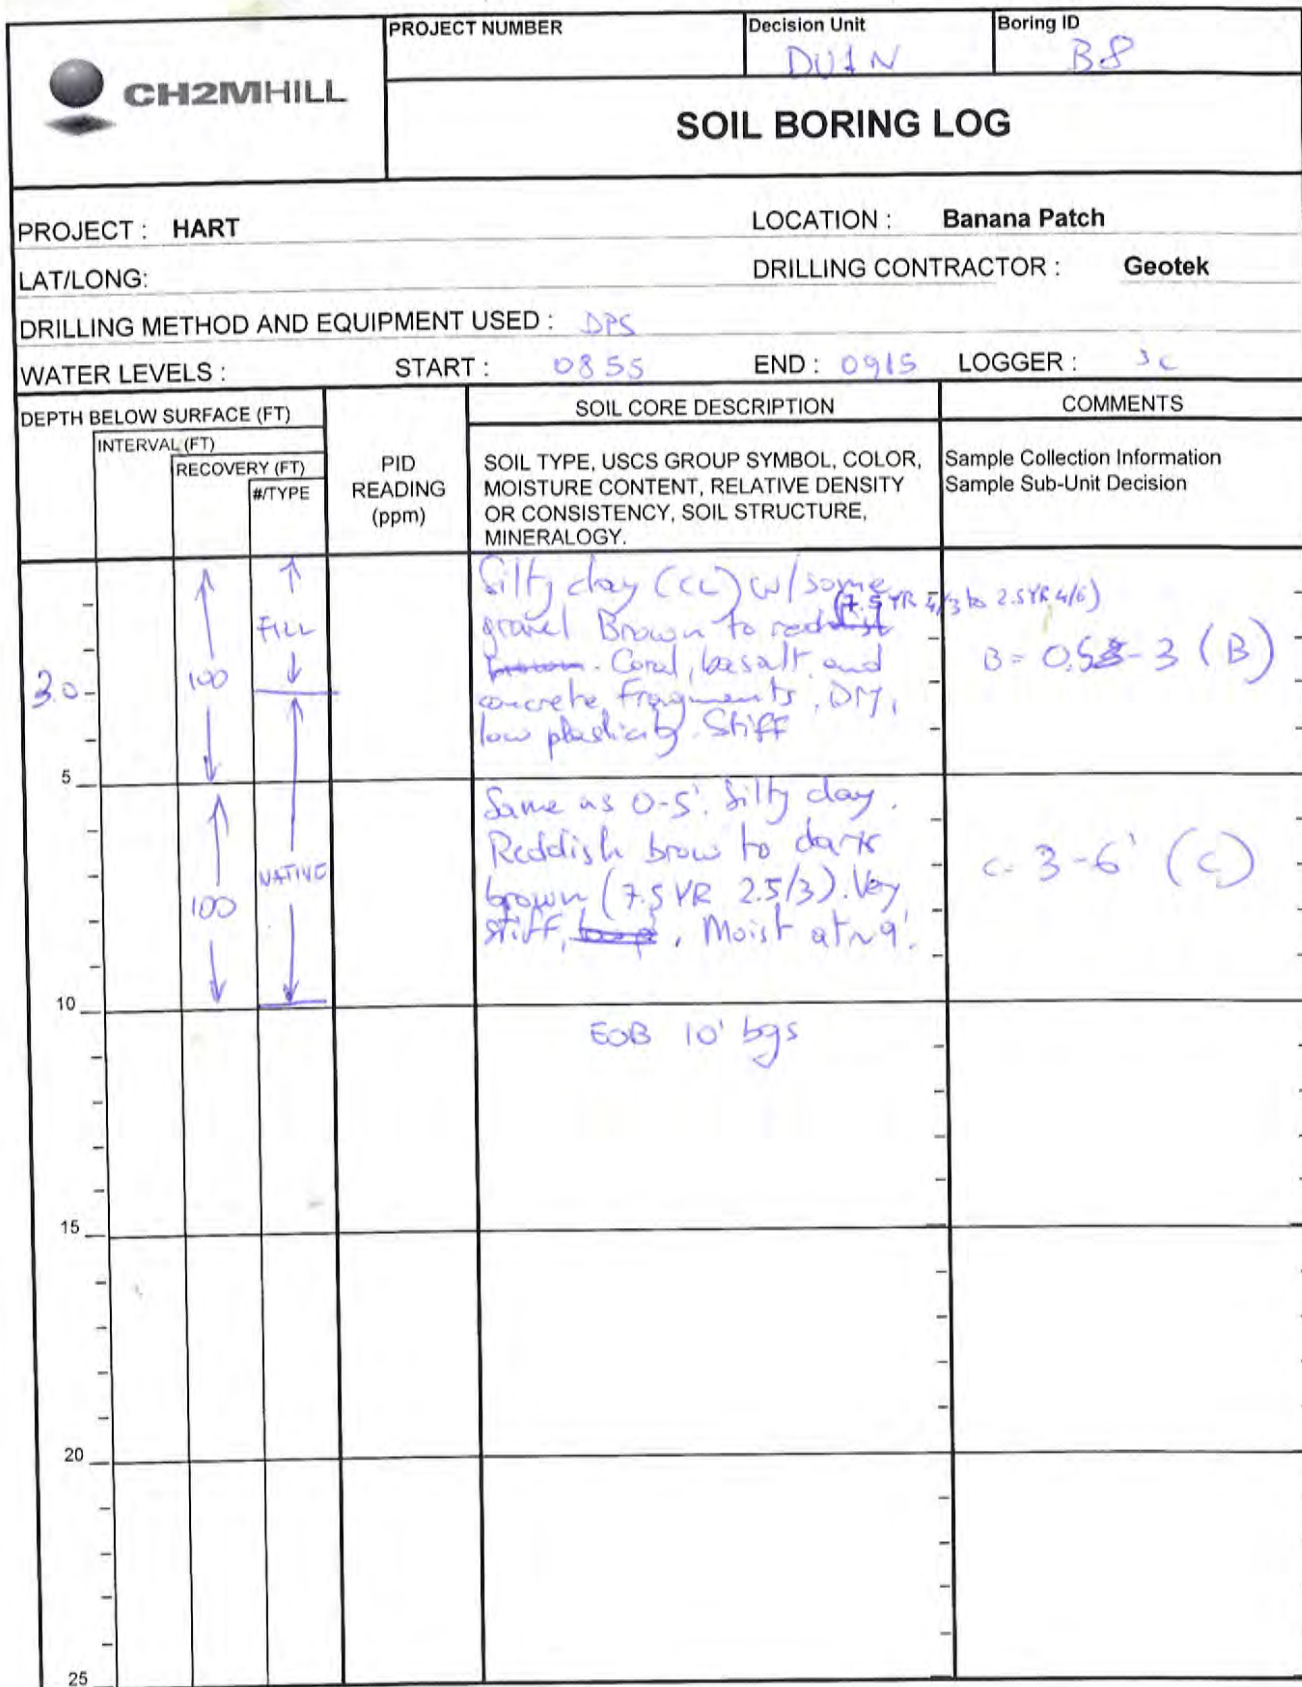 CH2MHILL
PROJECT NUMBER
Decision Unit
DU1N
Boring ID
B8
SOIL BORING LOG
PROJECT : HART
LOCATION : Banana Patch
LAT/LONG:
DRILLING CONTRACTOR : Geotek
DRILLING METHOD AND EQUIPMENT USED : DPS
WATER LEVELS : START : 0855 END : 0915 LOGGER :
DEPTH BELOW SURFACE (FT)
INTERVAL (FT)
RECOVERY (FT)
#/TYPE
PID
READING
(ppm)
SOIL CORE DESCRIPTION
SOIL TYPE, USCS GROUP SYMBOL, COLOR,
MOISTURE CONTENT, RELATIVE DENSITY
OR CONSISTENCY, SOIL STRUCTURE,
MINERALOGY.
COMMENTS
Sample Collection Information
Sample Sub-Unit Decision
3.0
100
FILL
Silty clay (CL) w/ some
(7.5 YR 4/3 to 2.5YR 4/6)
gravel Brown to
. Coral, basalt, and
concrete fragments. Dry,
low plasticity. Stiff
B = 0.5 - 3 (B)
5
100
NATIVE
Same as 0-5'. Silty clay.
Reddish brow to dark
brown (7.5 YR 2.5/3). Very
stiff, , Moist at ~9'.
C- 3-6' (C)
10
EOB 10' bgs
15
20
25